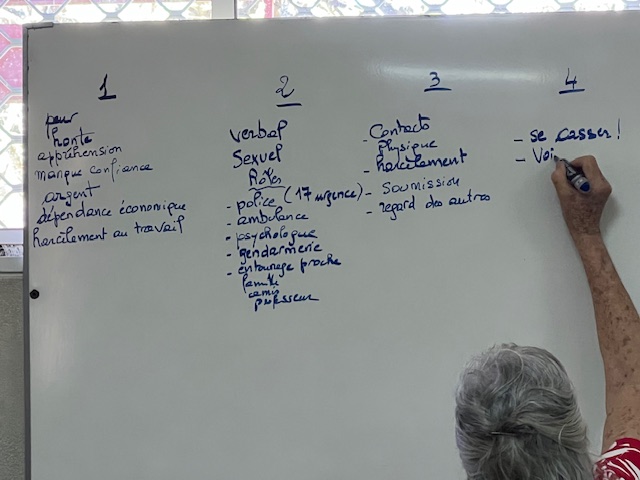 1
peur
honte
appréhension
manque confiance
argent
dépendance économique
harcèlement au travail
2
verbal
Sexuel
Rôles
- police (17 urgence)
- ambulance
- psychologue
- gendarmerie
- entourage proche
famille
amis
professeur
3
- Contacts
physique
- harcèlement
- Soumission
- regard des autres
4
- se casser !
- Voi